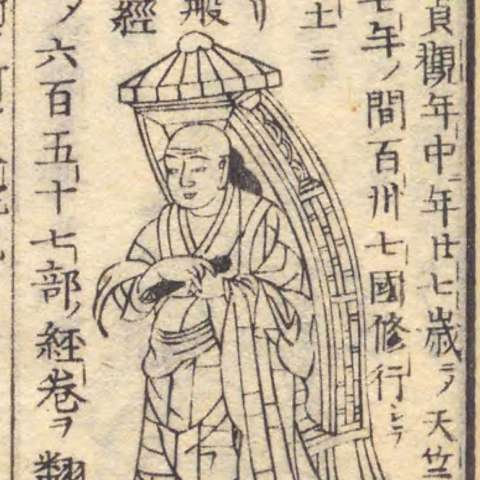 貞觀年中ニ年廿七歳ニ〆天竺
七年ノ間百卅七國修行シテ
土ニ
リ
般
經
〆六百五十七部ノ經卷ヲ翻